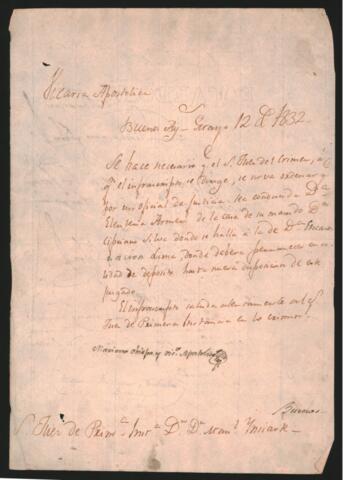 Vicaria Apostolica
Buenos Ay.s 12 de 1832
Se hace necesario q.e el S.r Juez del Crimen, á
q.n el infrascripto se dirige, se sirva ordenar q.e
por un oficial de Justicia, sea conducida D.a
Eleuteria de la casa de su marido D.n
Cipriano Silva donde se halla á la de D.a
donde deberá permanecer en ca
lidad de deposito hasta nueva disposicion de este
juzgado.
El infrascripto saluda atentamente al S.r
Juez de Primera Instancia en lo criminal.
Mariano Obispo y Vic.o Apostolico
Buenos
S. Juez de Prim.a Inst.a D.r D.n Man.l Ynsiarte